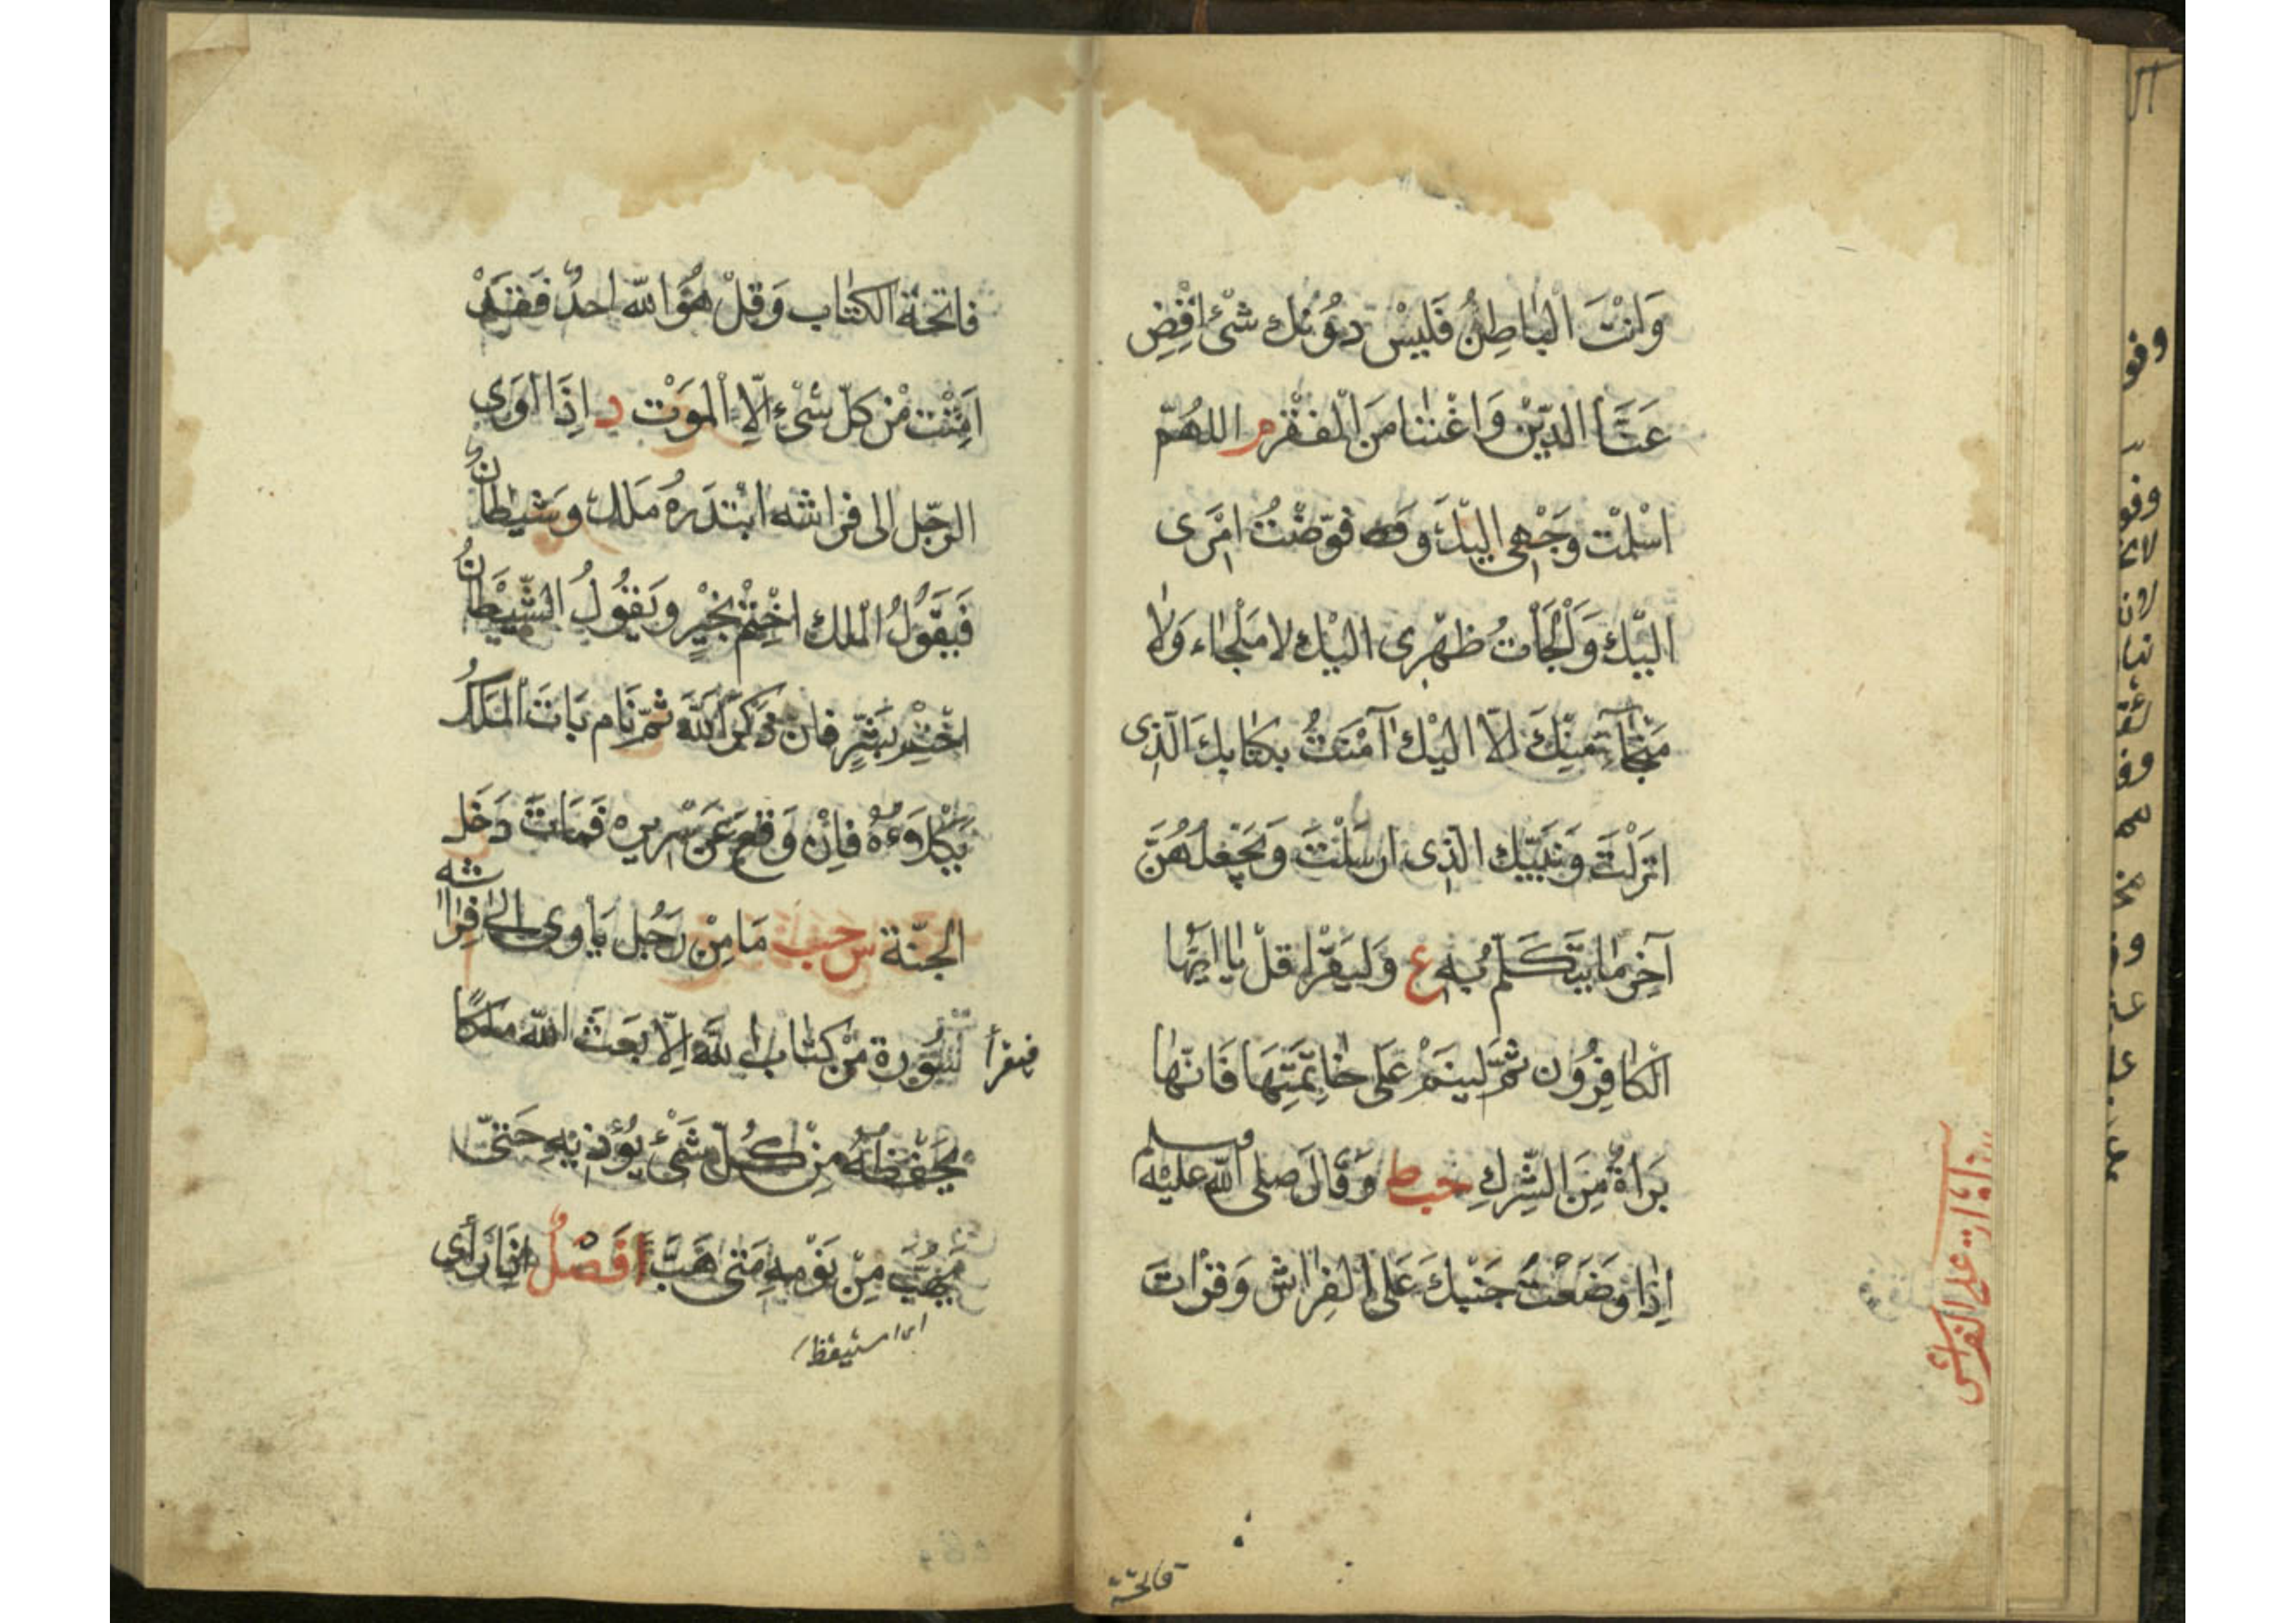 وَاَنْتَ الْبَاطِنُ فَلَيْسَ دُوْنَكَ شَئْ اِقْضِ
عَنَّا الدَّيْنَ وَاغْنِنَا مِنَ الْفَقْرِ م اللهُمّ
اسْلمْت وَجْهِى اليْكَ وفوّضْتُ امْرَى
اليْكَ وَلْجَأْتُ ظهْرِى اليْكَ لا مَلْجَاء وَلَا
مَنْجَا مِنْكَ اِلّا اليْكَ آمَنْتُ بِكتَابِكَ الّذِى
انْزَلْتَ وَنَبِيّكَ الّذِى ارْسَلْتَ وَيَجْعَلُهُنَّ
آخِرَ مَا يَتَكَلّمُ بِهِ ع وَليَقْرَا قلْ يَا ايّهَا
الْكَافِرُون ثُمَّ ليَنَمْ عَلَى خَاتِمَتِهَا فَانّهَا
بَرَاةٌ مِنَ الشِّرْكِ حب ط وَقَالَ صلى الله عليْه وسلم
اِذَا وَضَعْتَ جَنْبَكَ عَلَى الْفِرَاشِ وَقَرْاتَ
فاتحة
على الفراش
فاتحَةَ الكتَاب وَقلْ هُوَ الله احدٌ فقَدْ
اَمِنْتَ مْن كلّ شَىْءٍ اِلّا الْمَوْت ر اِذَا اوَى
الرّجل الى فراشه ابْتدَرهُ مَلك وَشيْطانٌ
فَيَقُولُ الْملك اخْتِمْ بِخَيْرٍ وَيَقُولُ الشّيْطَانُ
اخْتِمْ بِشَرٍّ فان ذكَرَ اللهَ ثمّ نَام بَاتَ الْمَلَكُ
يَكْلَوءُهُ فاِنْ وَقعَ عَنْ سَرْيرِه فَمَاتَ دَخَل
الجنّة س حب مَا مِنْ رَجُل يَأوى الى فِرَاشه
فيقرأ سُوْرة مْن كتَاب اللهِ اِلّا بَعَثَ الله مَلَكًا
يَحْفَظُهُ مِنْ كُلّ شَئْ يُؤْذِيْهِ حَتىّ
يَهُبَّ مِنْ نَوْمِهِ مَتَى هَبَّ ا فَصْلُ اذَا رَأى
اى استيقظ